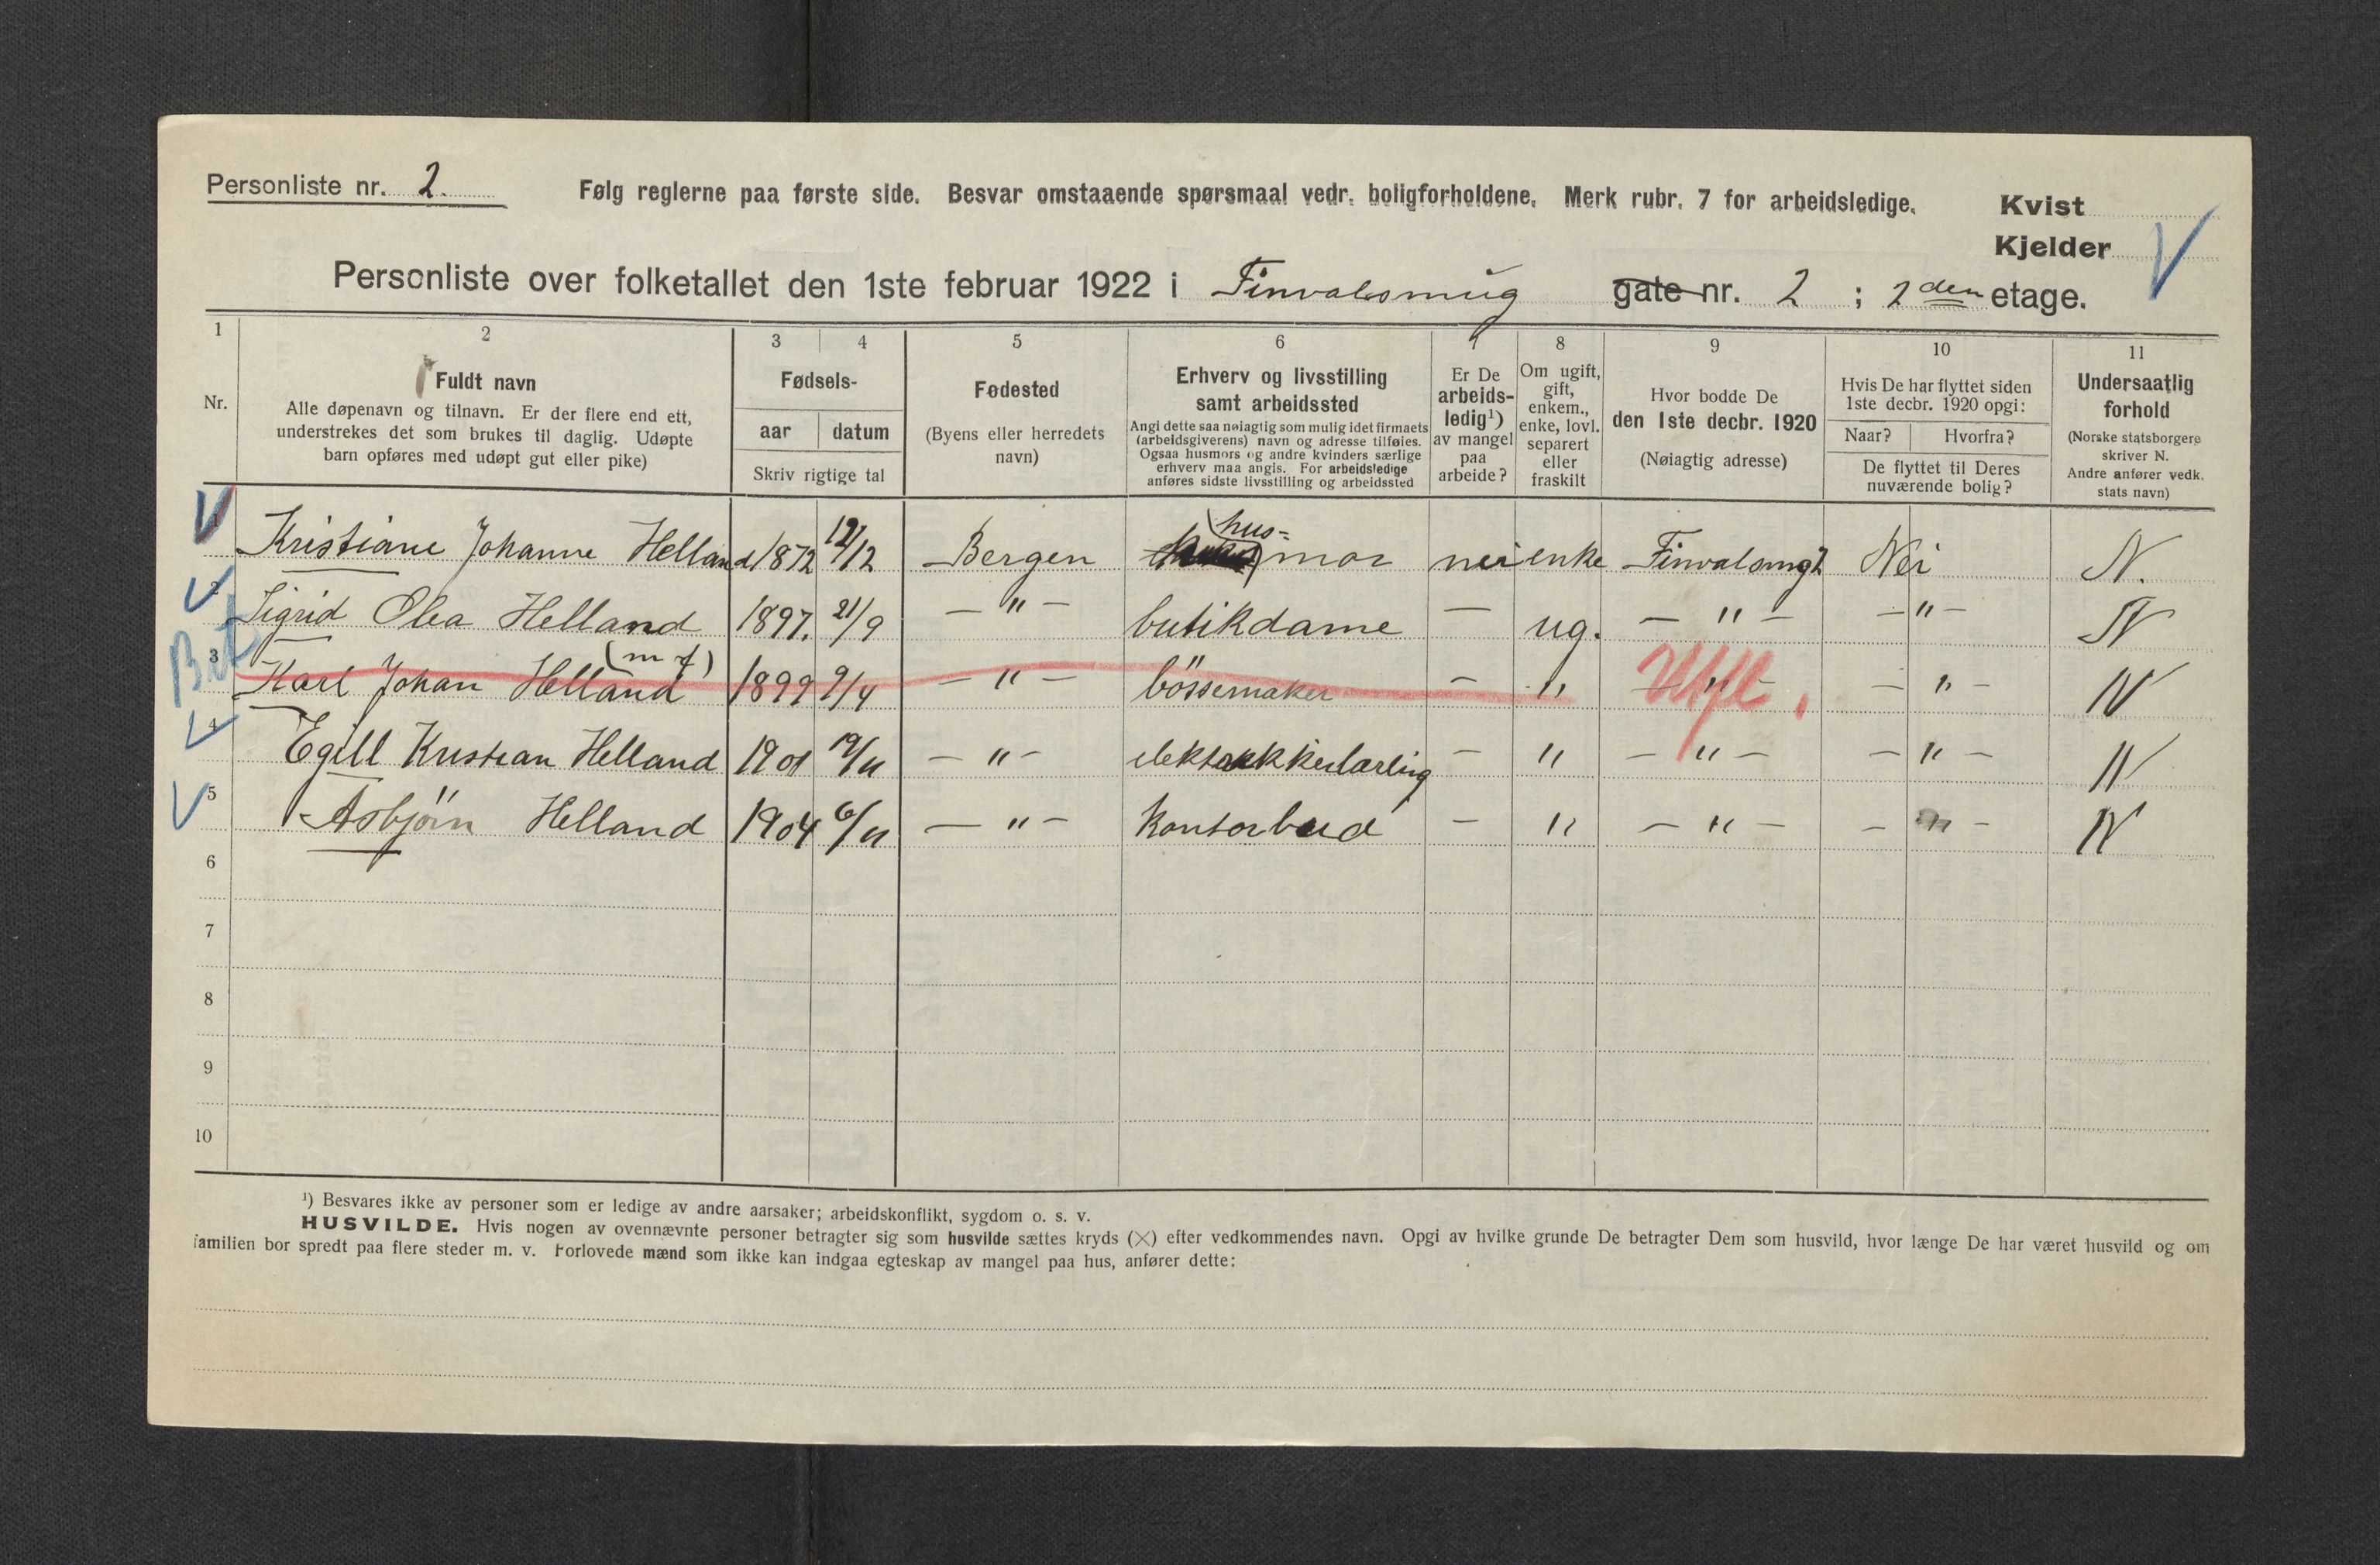 Personliste nr. 2.
Følg reglerne paa første side. Besvar omstaaende spørsmaal vedr. boligforholdene. Merk rubr. 7 for arbeidsledige.
Kvist
Kjelder
Personliste over folketallet den 1ste februar 1922 i Finvalsmug gate nr. 2 ; 2den etage.
1 2 3 4 5 6 7 8 9 10 11
Nr.
Fuldt navn
Alle døpenavn og tilnavn. Er der flere end ett,
understrekes det som brukes til daglig. Udøpte
barn opføres med udøpt gut eller pike)
Fødsels-
aar datum
Skriv rigtige tal
Fødested
(Byens eller herredets
navn)
Erhverv og livsstilling
samt arbeidssted
Angi dette saa nøiagtig som mulig idet firmaets
(arbeidsgiverens) navn og adresse tilføies.
Ogsaa husmors og andre kvinders særlige
erhverv maa angis. For arbeidsledige
anføres sidste livsstilling og arbeidssted
Er De
arbeids-
ledig¹)
av mangel
paa
arbeide?
Om ugift,
gift,
enkem.,
enke, lovl.
separert
eller
fraskilt
Hvor bodde De
den 1ste decbr. 1920
(Nøiagtig adresse)
Hvis De har flyttet siden
1ste decbr. 1920 opgi:
Naar? Hvorfra?
De flyttet til Deres
nuværende bolig?
Undersaatlig
forhold
(Norske statsborgere
skriver N.
Andre anfører vedk.
stats navn)
hus=
Kristiane Johanne Helland 1872 12/12 Bergen mor nei enke Finvalsmg 2 Nei N.
2 Sigrid Olea Helland 1897. 21/9 — " — butikdame — ug. — " — — " — N
(m f)
3 Karl Johan Helland 1899 9/4 — " — bössemaker — " — " — — " — N
Utfl.
4 Egill Kristian Helland 1901 19/11 — " — — " — " — — " — N
5 Asbjörn Helland 1904 6/11 — " — Kontorbud — " — " — — " — N
6
7
8
9
10
¹) Besvares ikke av personer som er ledige av andre aarsaker; arbeidskonflikt, sygdom o. s. v.
HUSVILDE. Hvis nogen av ovennævnte personer betragter sig som husvilde sættes kryds (×) efter vedkommendes navn. Opgi av hvilke grunde De betragter Dem som husvild, hvor længe De har været husvild og om
familien bor spredt paa flere steder m. v. Forlovede mænd som ikke kan indgaa egteskap av mangel paa hus, anfører dette: